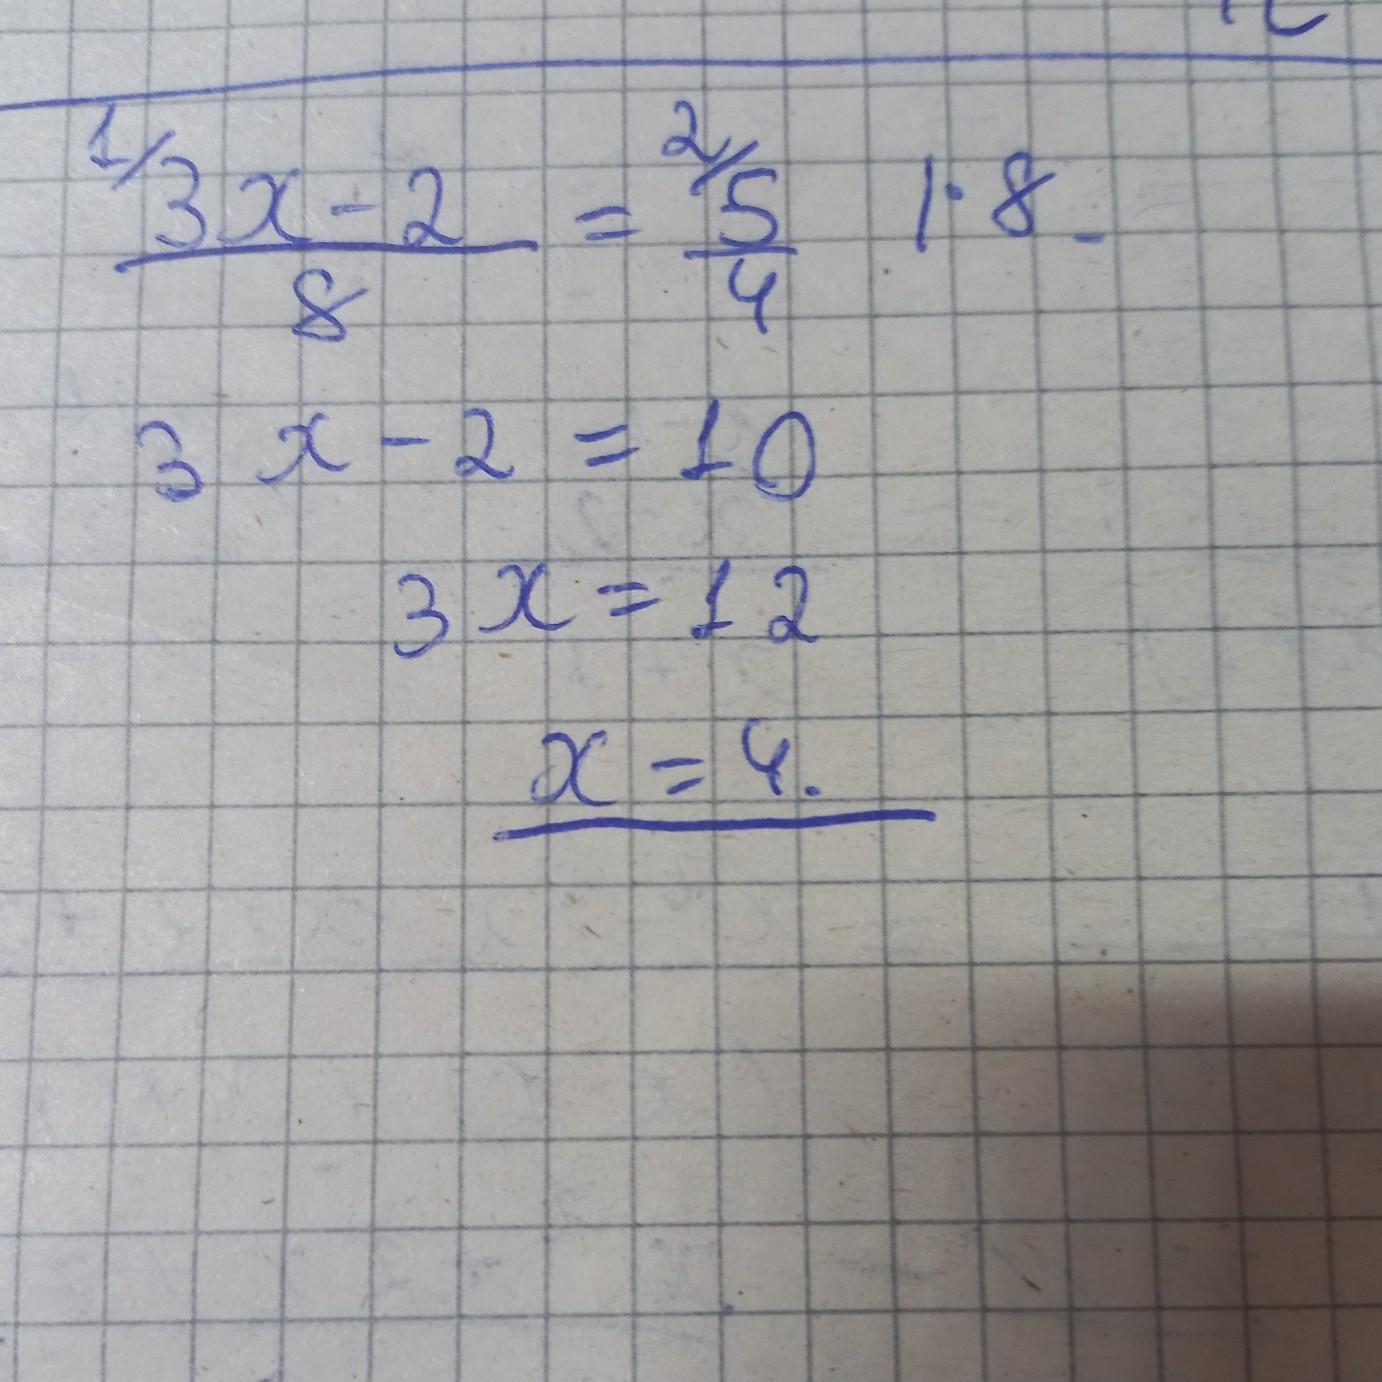 1/ 3x - 2 / 8 = 2/ 5 / 4 | · 8
3x - 2 = 10
3x = 12
x = 4.